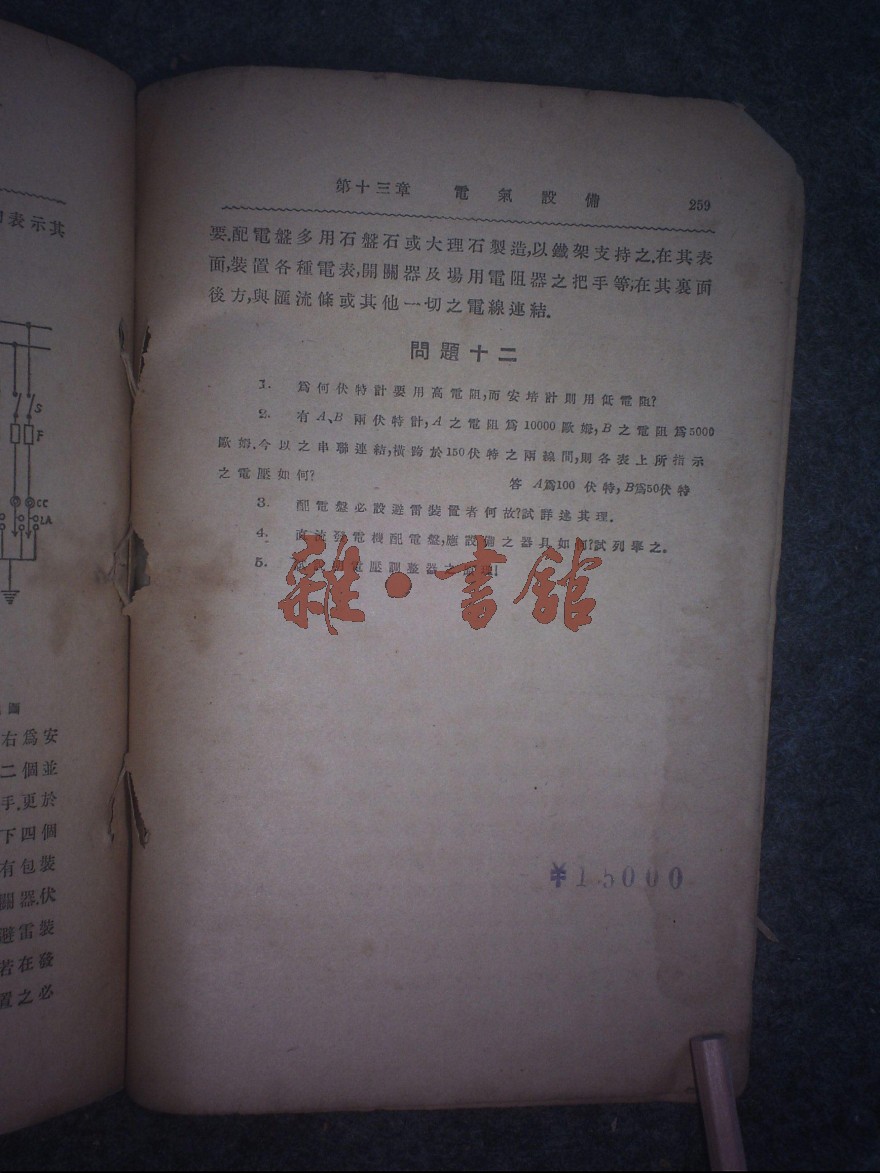 表示其
S
F
CC
LA
圖
右爲安
二個並
手.更於
下四個
有包裝
關器.伏
避雷裝
若在發
置之必
第十三章 電氣設備 259
要.配電盤多用石盤石或大理石製造,以鐵架支持之.在其表
面,裝置各種電表,開關器及場用電阻器之把手等,在其裏面
後方,與匯流條或其他一切之電線連結.
問題十二
1. 爲何伏特計要用高電阻,而安培計則用低電阻?
2. 有A、B兩伏特計,A之電阻爲10000歐姆,B之電阻爲5000
歐姆.今以之串聯連結,橫跨於150伏特之兩線間,則各表上所指示
之電壓如何? 答 A爲100伏特,B爲50伏特
3. 配電盤必設避雷裝置者何故?試詳述其理.
4. 直流發電機配電盤,應設備之器具如何?試列舉之.
5. 電壓調整器之
雜·書館
¥15000